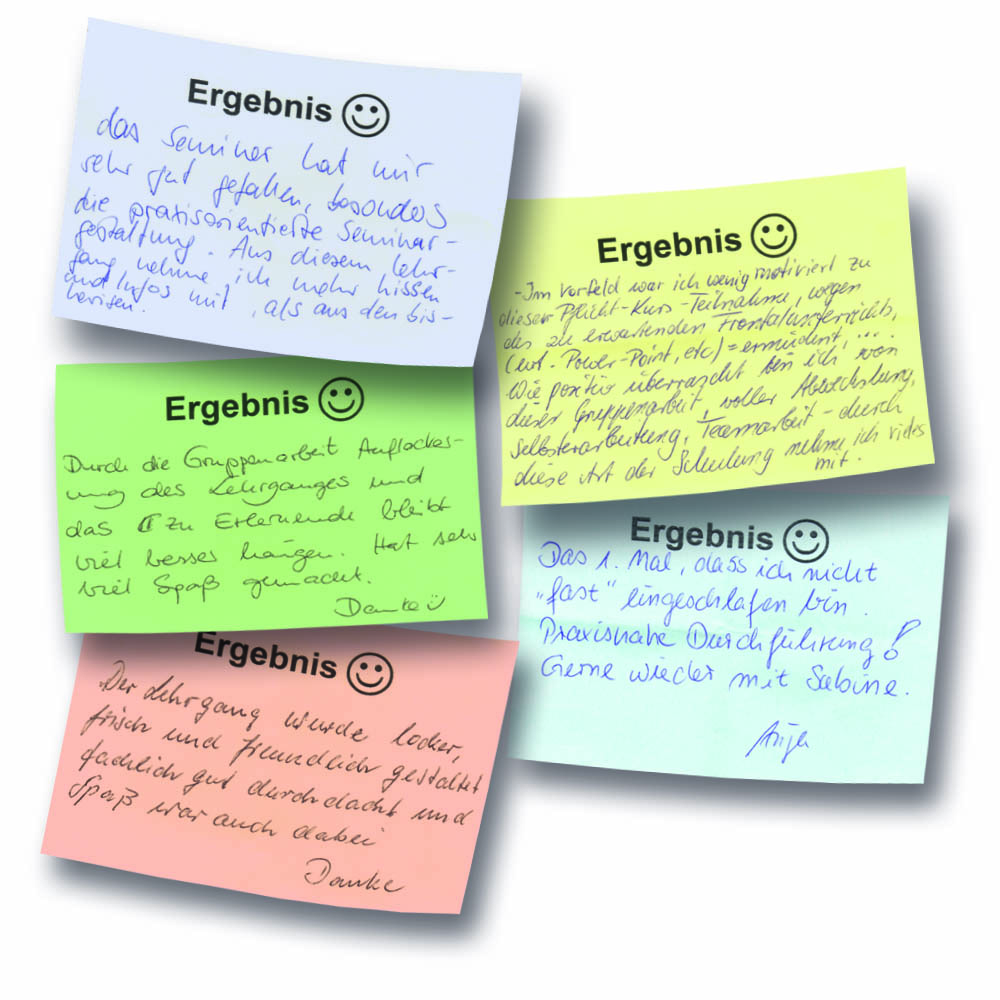 Ergebnis
das Seminar hat mir
sehr gut gefallen, besonders
die praxisorientierte Seminar-
gestaltung. Aus diesem Lehr-
gang nehme ich mehr Wissen
und Infos mit, als aus den bis-
herigen.
Ergebnis
- Im Vorfeld war ich wenig motiviert zu
dieser Pflicht-Kurs-Teilnahme, wegen
des zu erwartenden Frontalunterrichts,
(evt. Power-Point, etc) = ermüdent, ...
Wie positiv überrascht bin ich von
dieser Gruppenarbeit, voller Abwechslung,
Selbsterarbeitung, Teamarbeit - durch
diese Art der Schulung nehme ich vieles
mit.
Ergebnis
Durch die Gruppenarbeit Auflocker-
ung des Lehrganges und
das zu Erlernende bleibt
viel besser hängen. Hat sehr
viel Spaß gemacht.
Danke
Ergebnis
Das 1. Mal, dass ich nicht
„fast" eingeschlafen bin.
Praxisnahe Durchführung!
Gerne wieder mit Sabine.
Ergebnis
Der Lehrgang wurde locker,
frisch und freundlich gestaltet
fachlich gut durchdacht und
Spaß war auch dabei
Danke